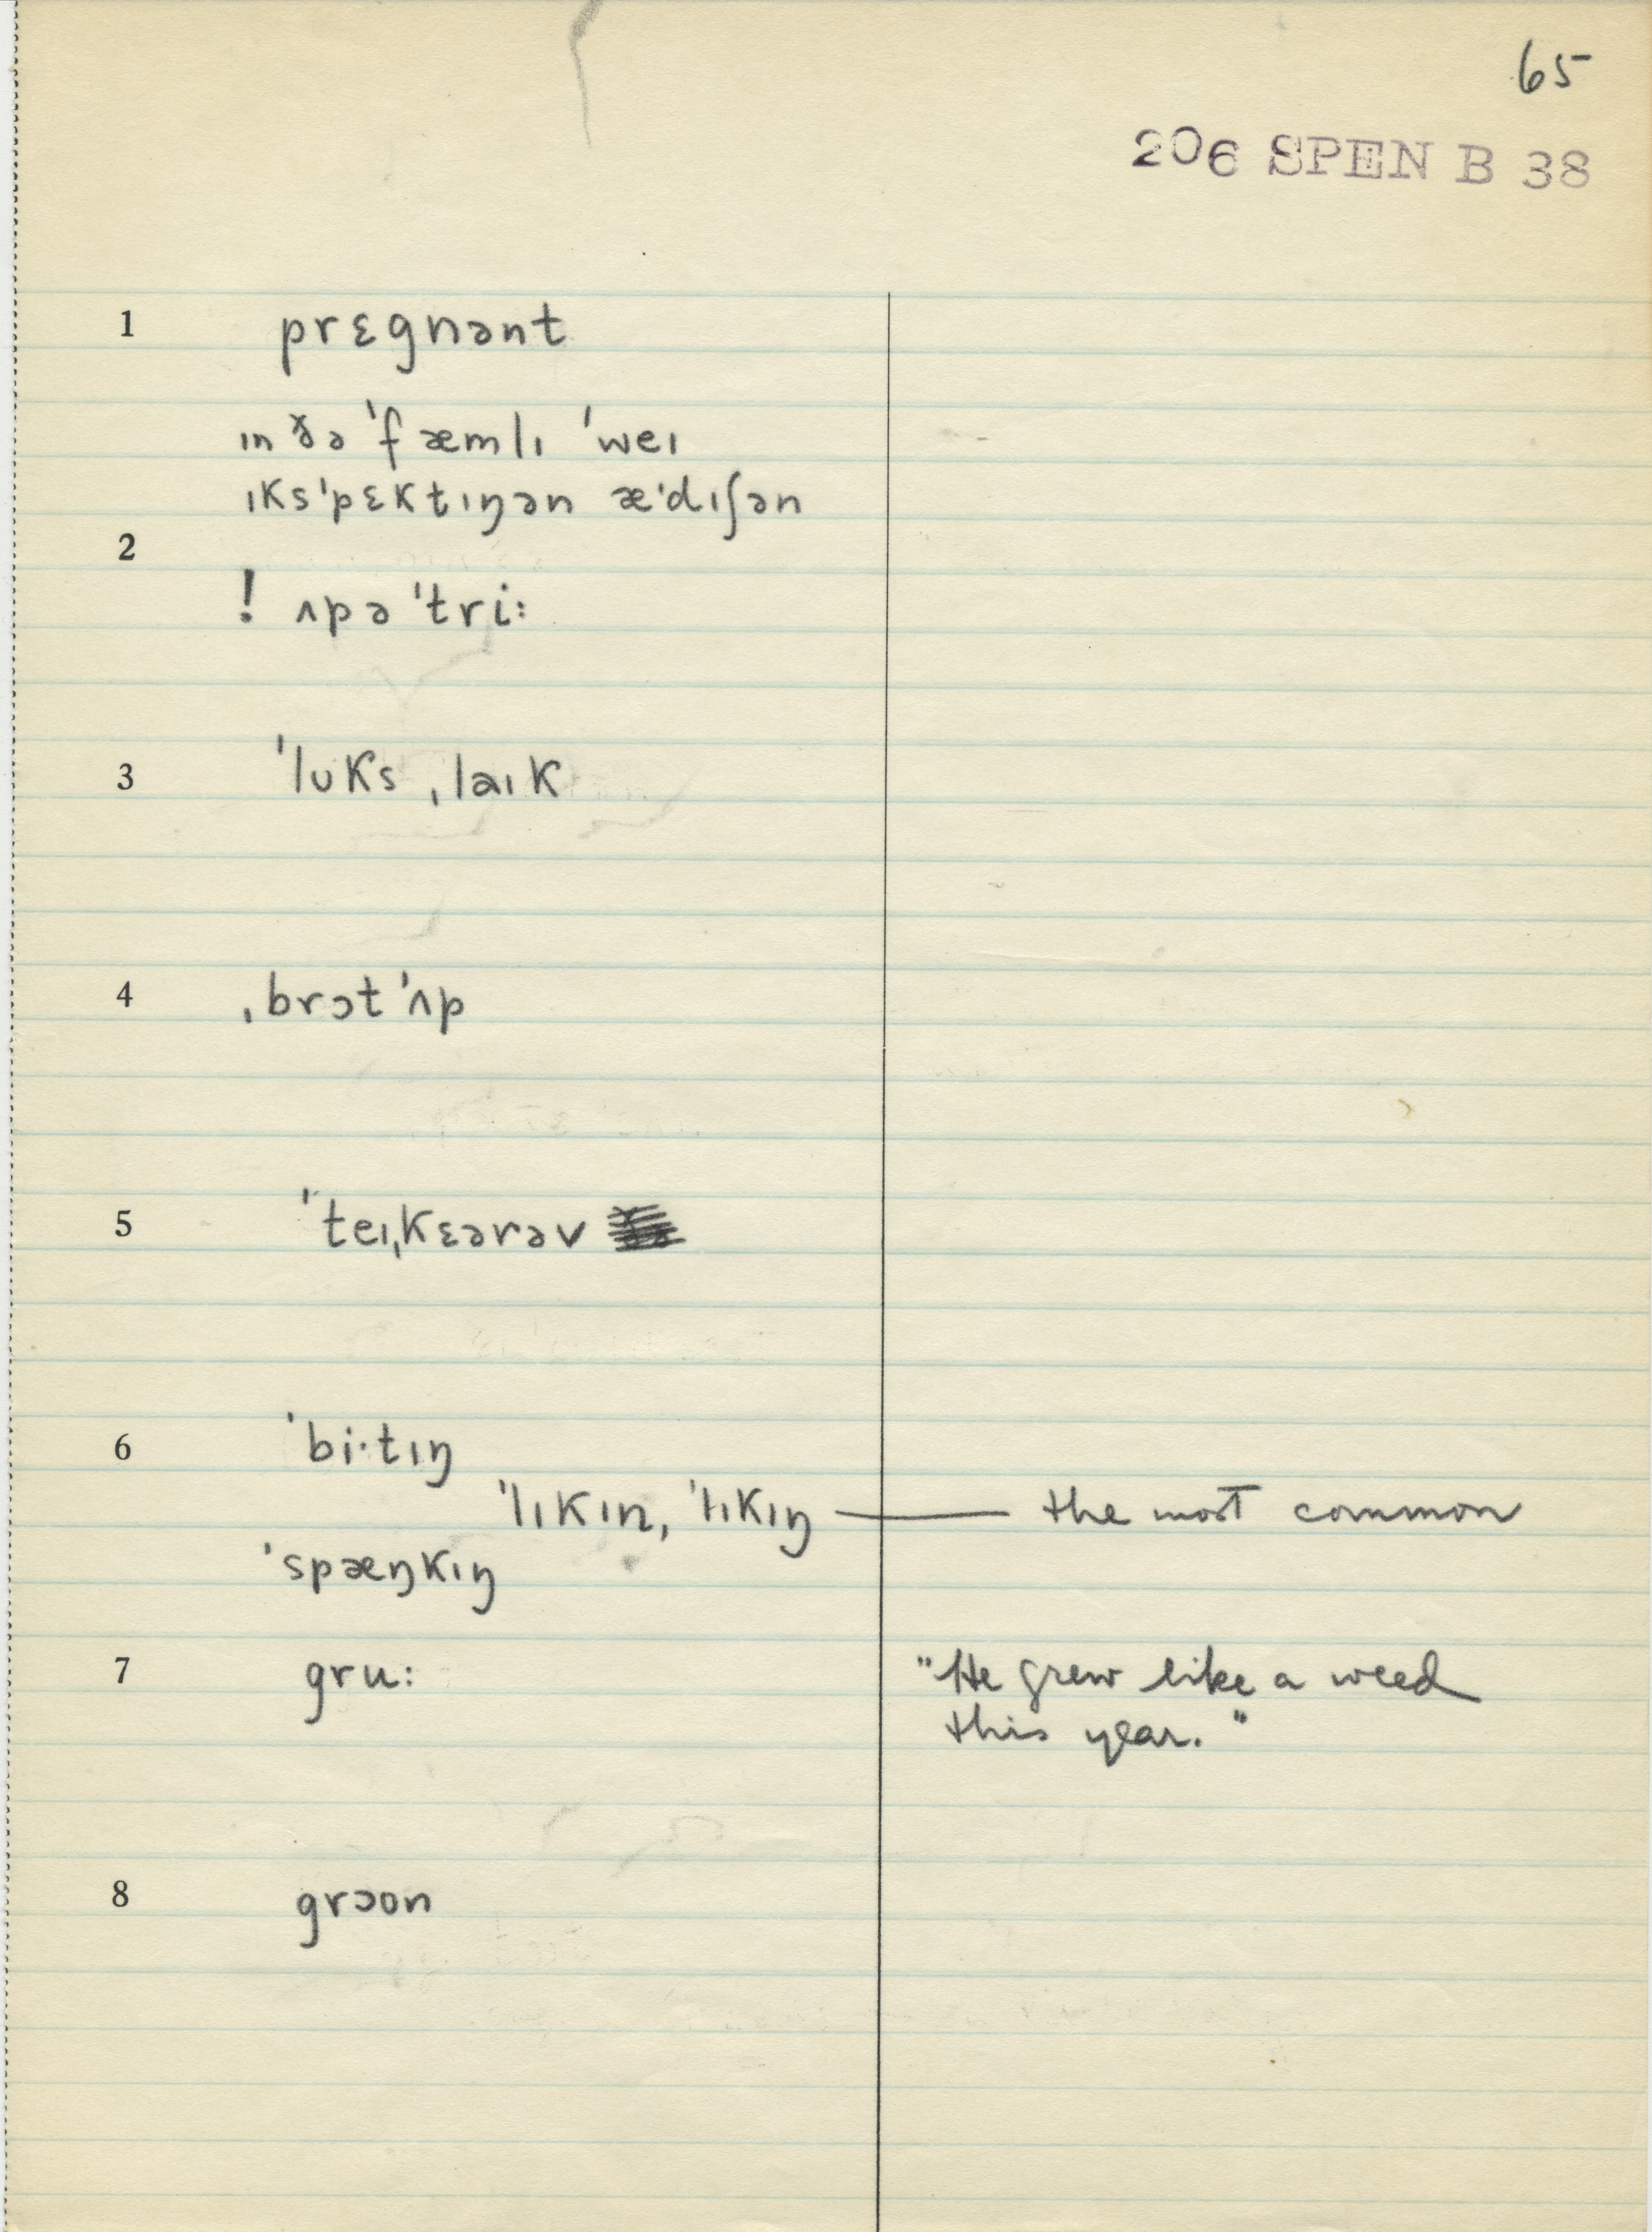 65
206 SPEN B 38
1 prɛgnənt
ɪn ðə ˈfæmlɪ ˈweɪ
ɪksˈpɛktɪŋən æˈdɪʃən
2
! ʌpə ˈtri:
3 ˈlʊks ˌlaɪk
4 ˌbrɔt ˈʌp
5 ˈteɪˌkɛərəv
6 ˈbi·tɪŋ
ˈlɪkɪn, ˈlɪkɪŋ — the most common
ˈspæŋkɪŋ
7 gru: "He grew like a weed
this year."
8 grɔon